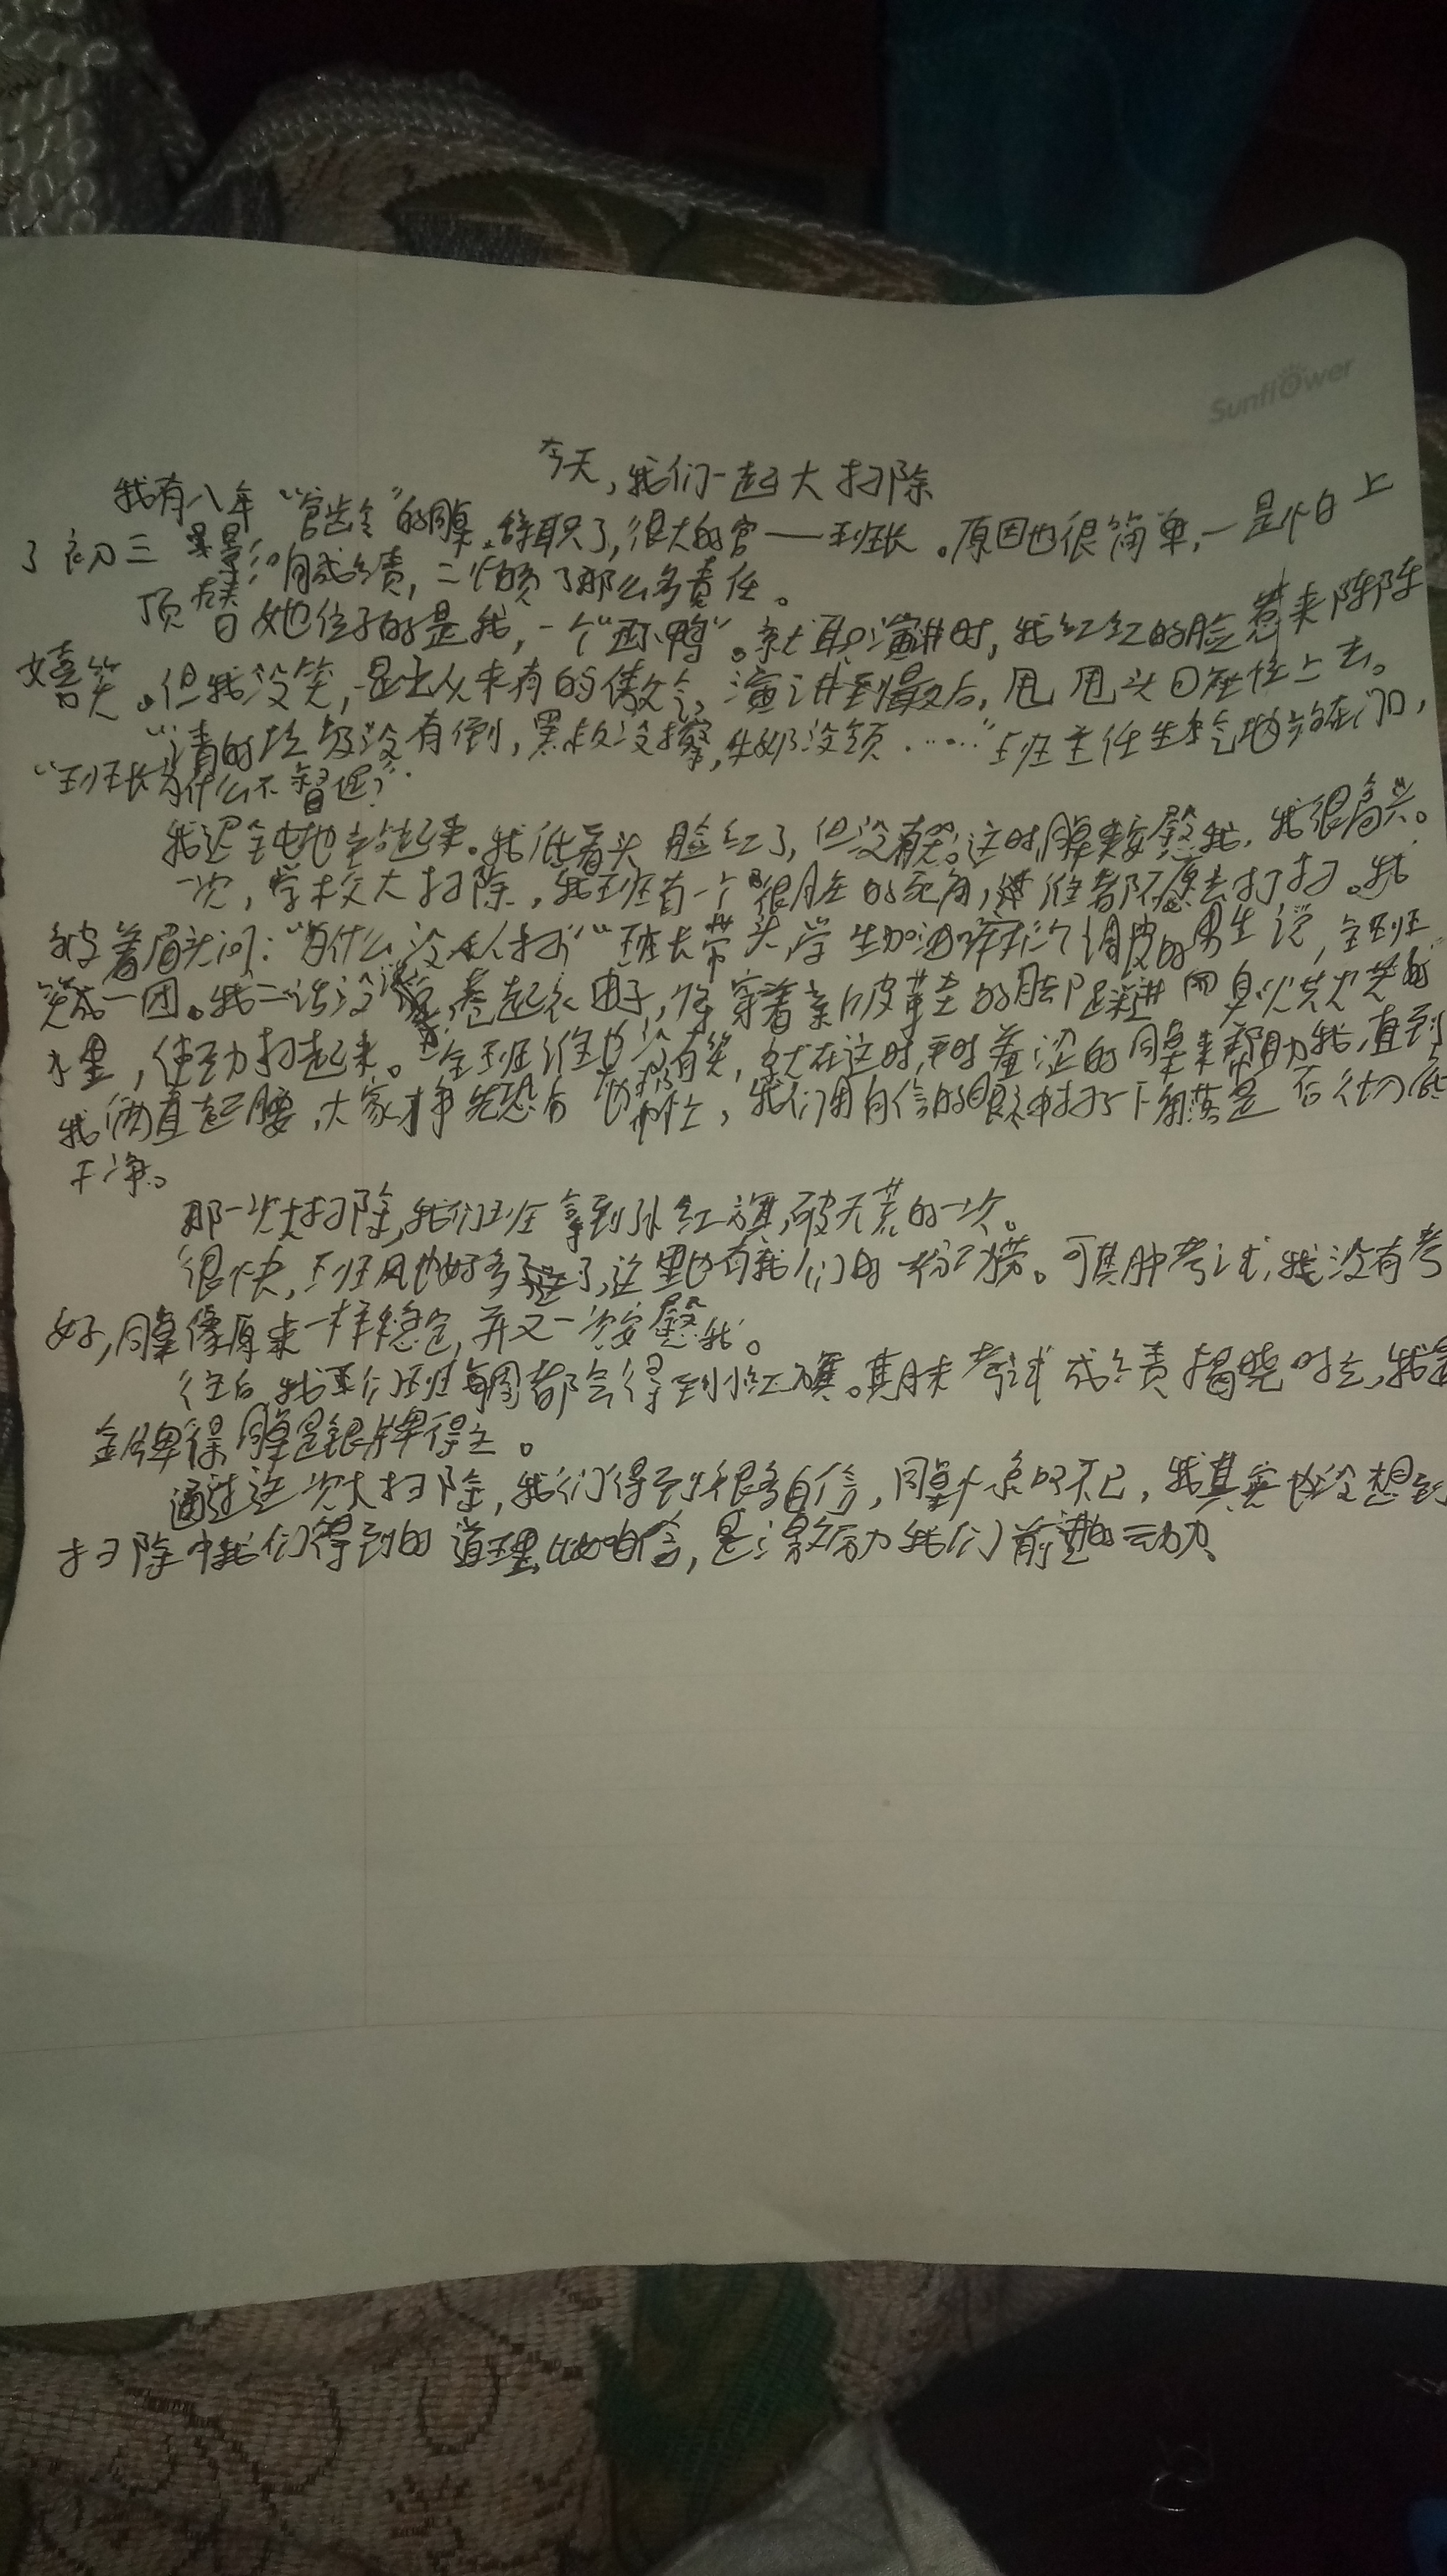 Sunflower
今天，我们一起大扫除
我有八年“官龄”的同桌辞职了，很大的官——班长。原因也很简单，一是怕上
了初三影响成绩，二怕负了那么多责任。
顶替她位子的是我，一个“丑小鸭”。就职演讲时，我红红的脸惹来阵阵
嬉笑。但我没笑，是去从来有的傲气。演讲到最后，甩甩头回座位上去。
“请的垃圾没有倒，黑板没擦，牛奶没领……”班主任生气地站在门口，
“班长为什么不管呢？”
我迟钝地走起来。我低着头，脸红了，但没有哭。这时，同桌来安慰我，我很高兴。
一次，学校大扫除，我班有一个很脏的死角，谁都不愿去打扫。我
皱着眉头问：“为什么没人扫”“班长带头，学生加油”几个调皮的男生说，全班
笑成一团。我二话没说，卷起衣，将穿着亲皮革圭的脚踩进
水里，使劲扫起来。全班谁也没有笑，就在这时，平时羞涩的同桌来帮助我，直到
我俩直起腰，大家才争先恐后，我们用自信的眼神扫了下角落是否彻底
干净。
那一次大扫除，我们班拿到小红旗，破天荒的一次。
很快，班风也好多了，这里也有我们的一份功劳。可期中考试，我没有考
好，同桌像原来一样稳定，并又一次安慰我。
往后，我们班每周都会得到小红旗。期末考试成绩揭晓时，我是
金牌得同桌是银牌得主。
通过这次大扫除，我们得到很多自信，同桌不已，我其实也没想到
扫除中我们得到的道理，比如自信，是激励我们前进的动力